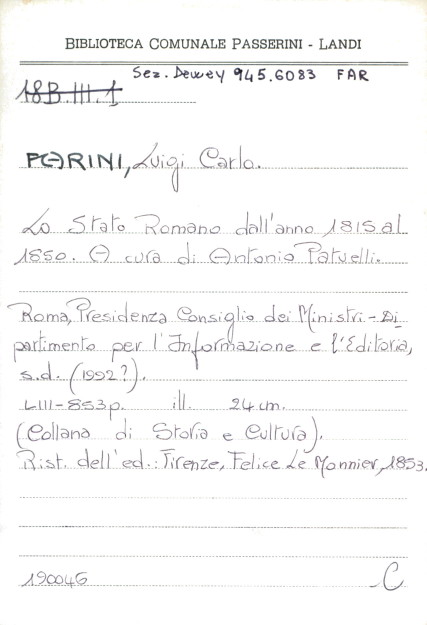 BIBLIOTECA COMUNALE PASSERINI - LANDI
Sez. Dewey 945.6083 FAR
18B.III.1
FARINI, Luigi Carlo.
Lo Stato Romano dall'anno 1815 al
1850. A cura di Antonio Patuelli.
Roma, Presidenza Consiglio dei Ministri - Di
partimento per l'Informazione e l'Editoria,
s.d. (1992?).
LIII-853p. ill. 24 cm.
(Collana di Storia e Cultura).
Rist. dell'ed.: Firenze, Felice Le Monnier, 1853.
190046
C